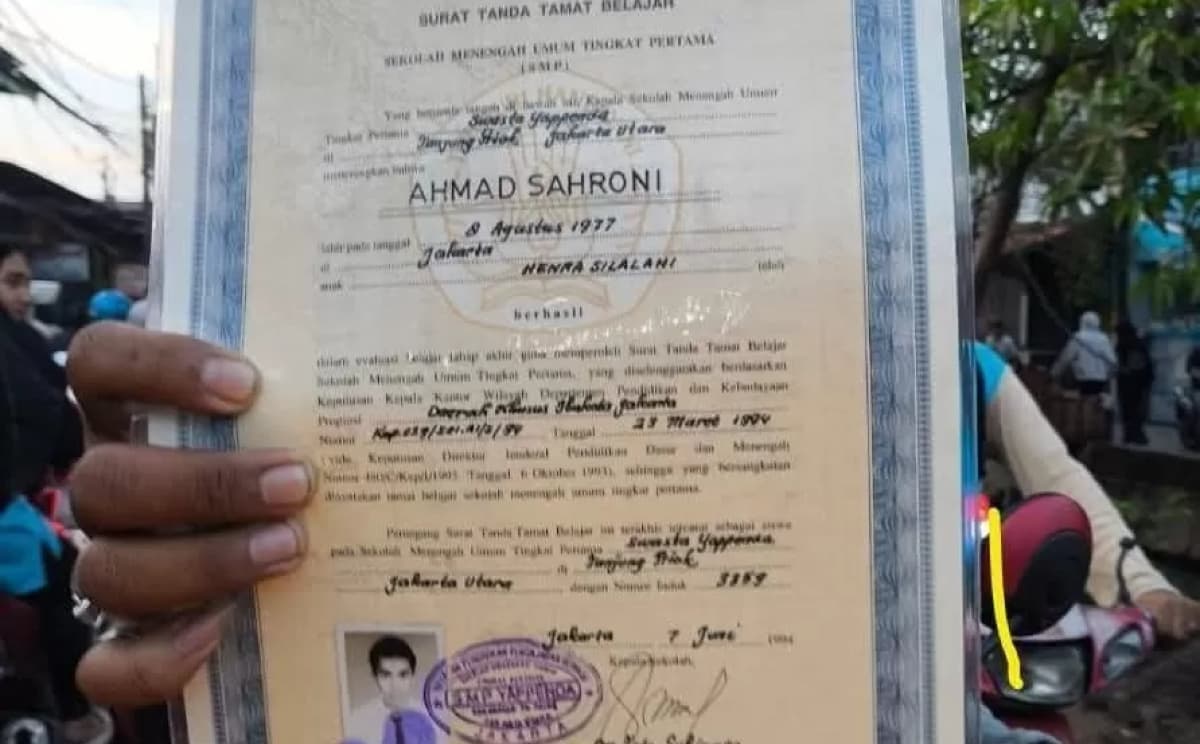 SURAT TANDA TAMAT BELAJAR
SEKOLAH MENENGAH UMUM TINGKAT PERTAMA
(SMP)
Yang bertanda tangan di bawah ini, Kepala Sekolah Menengah Umum
Tingkat Pertama Swasta Yappenda
di Tanjung Priok, Jakarta Utara
menerangkan bahwa
AHMAD SAHRONI
lahir pada tanggal 8 Agustus 1977
di Jakarta
anak HENRA SILALAHI telah
berhasil
dalam evaluasi belajar tahap akhir guna memperoleh Surat Tanda Tamat Belajar
Sekolah Menengah Umum Tingkat Pertama, yang diselenggarakan berdasarkan
Keputusan Kepala Kantor Wilayah Departemen Pendidikan dan Kebudayaan
Propinsi Daerah Khusus Ibukota Jakarta
Nomor Tanggal 23 Maret 1994
(vide, Keputusan Direktur Jenderal Pendidikan Dasar dan Menengah
Tanggal 6 Oktober 1993), sehingga yang bersangkutan
dinyatakan tamat belajar sekolah menengah umum tingkat pertama.
Pemegang Surat Tanda Tamat Belajar ini terakhir tercatat sebagai siswa
pada Sekolah Menengah Umum Tingkat Pertama Swasta Yappenda
di Tanjung Priok
Jakarta Utara dengan Nomor Induk 3359
Jakarta 7 Juni 1994
Kepala Sekolah,
SMP YAPPENDA
JAKARTA